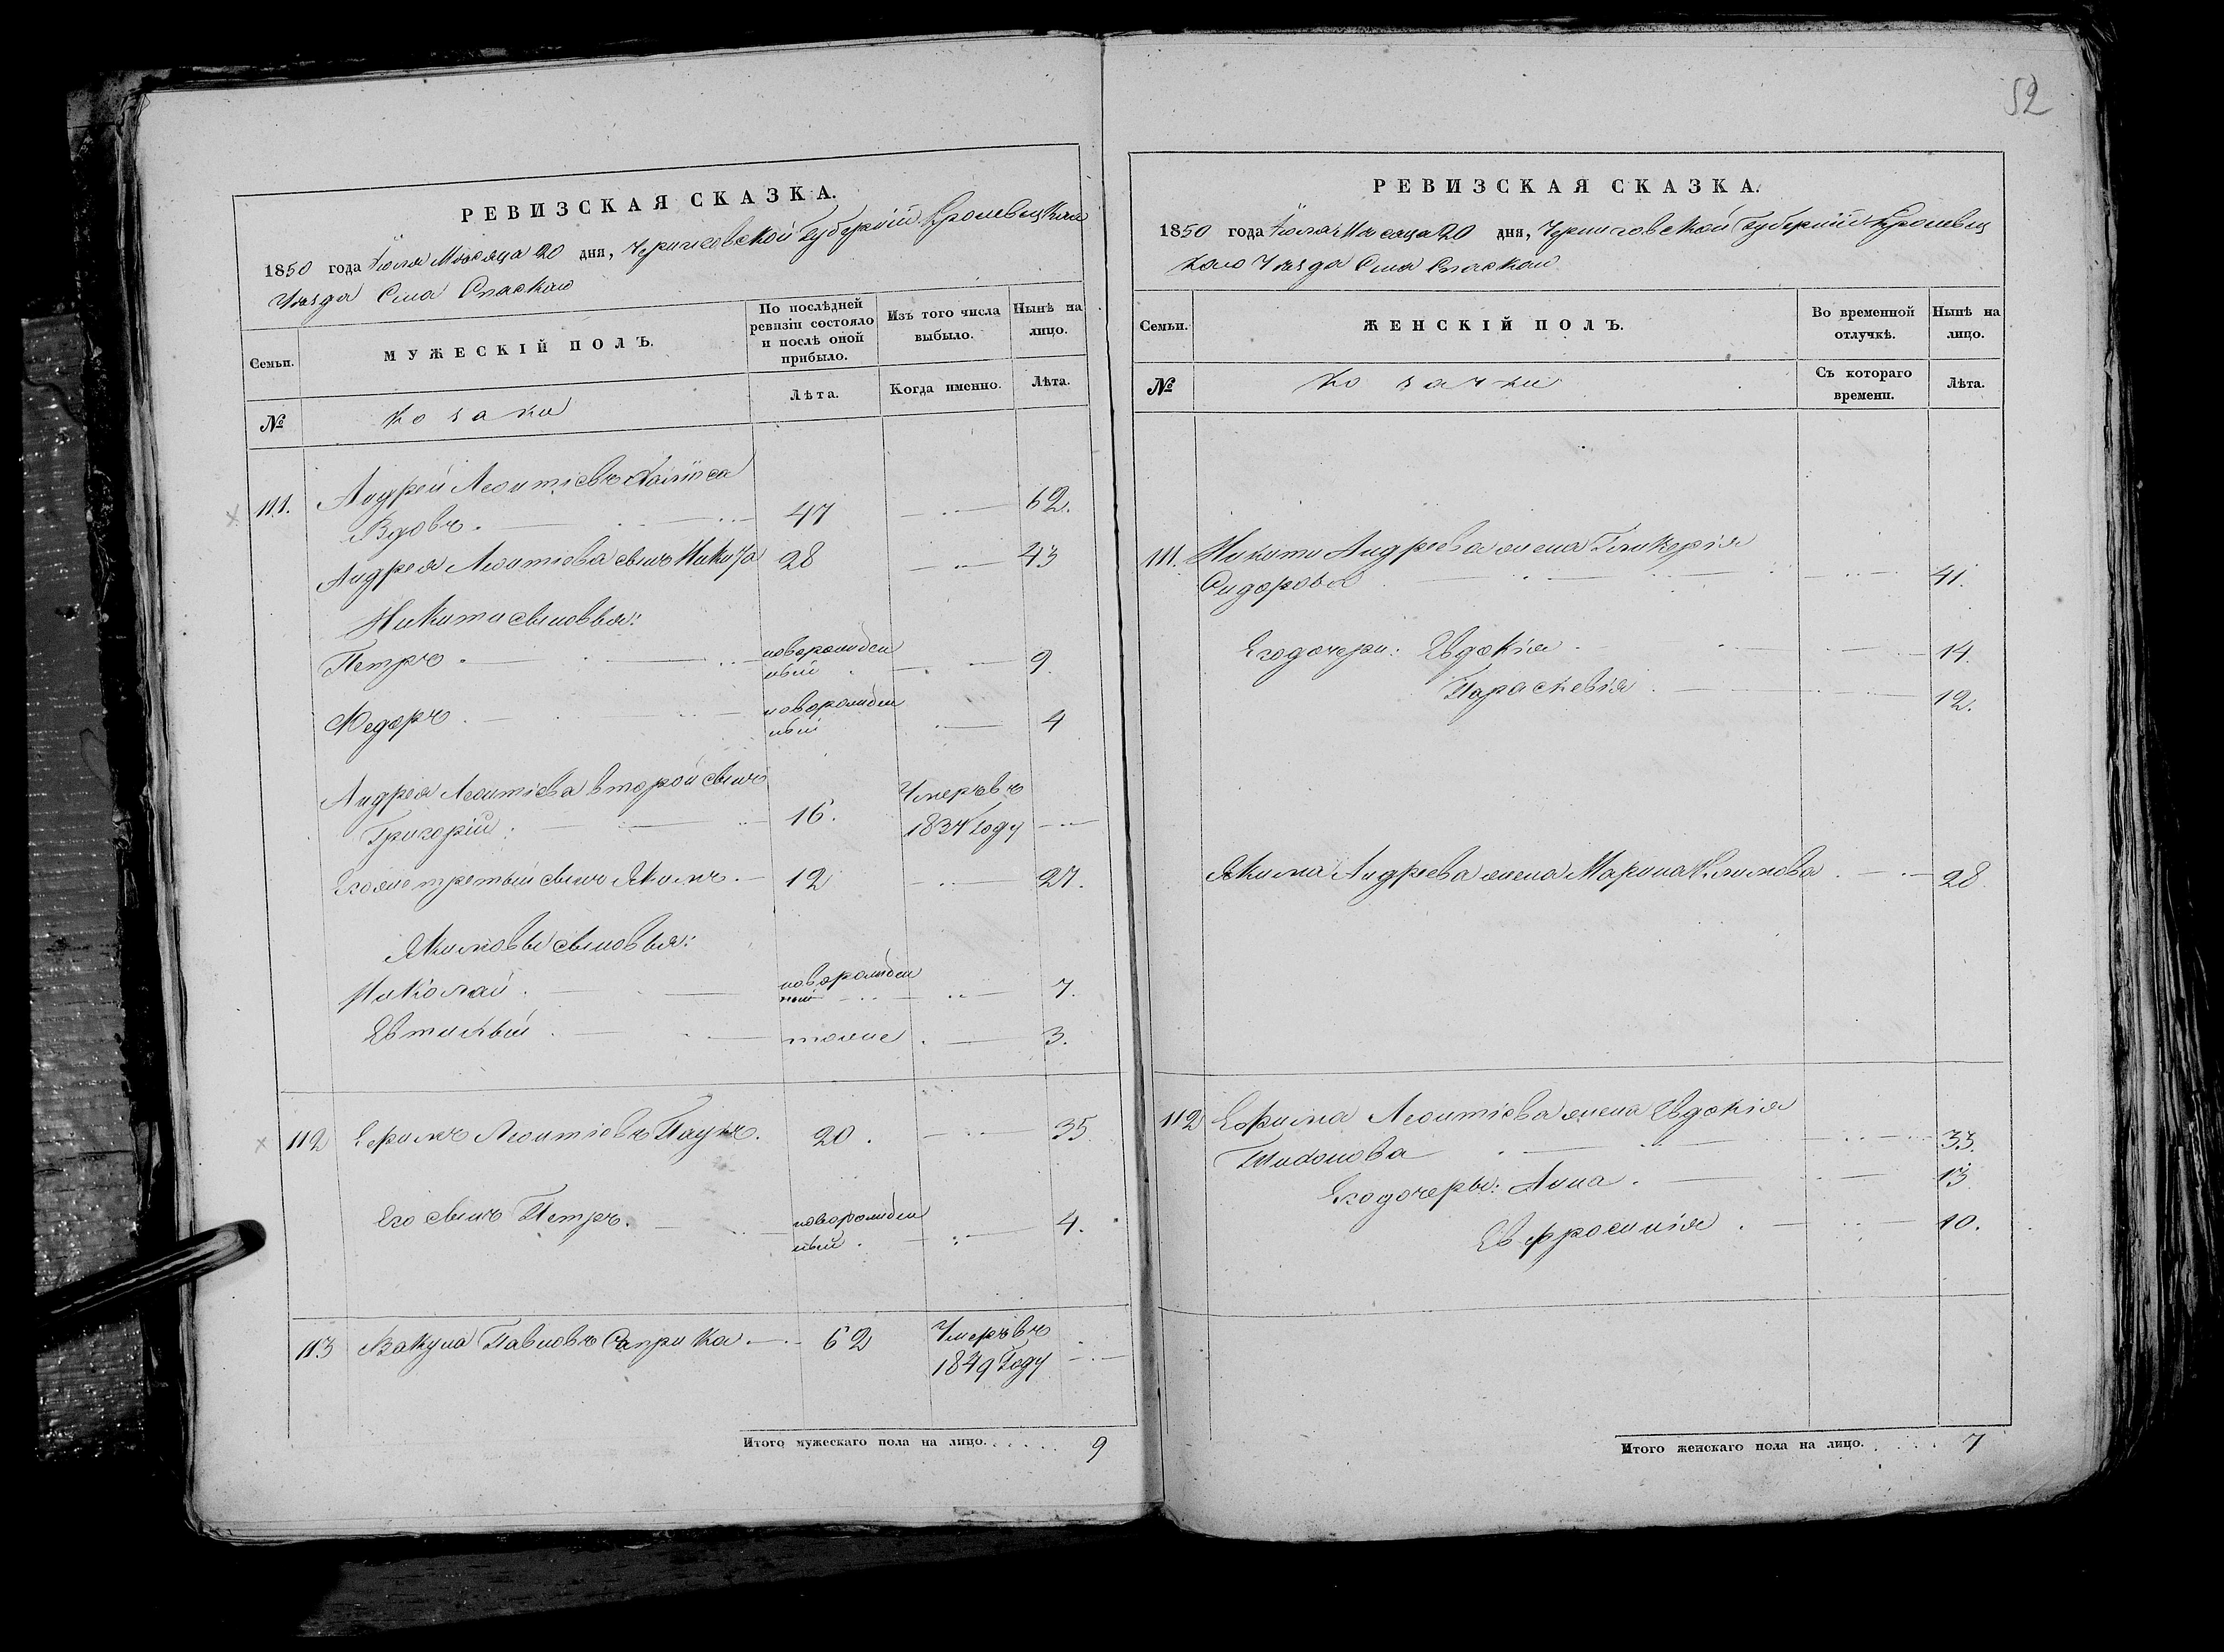 РЕВИЗСКАЯ СКАЗКА.
1850 года Іюля Месяца 20 дня, Черниговской Губерніи Кролевецкаго
Уезда Села Спаскаго
Семьи.
МУЖЕСКІЙ ПОЛЪ.
По послѣдней ревизіи состояло и послѣ оной прибыло.
Изъ того числа выбыло.
Нынѣ на лицо.
№
козаки
Лѣта.
Когда именно.
Лѣта.
111. Андрей Леонтіевъ
Вдовъ. 47 62.
Андрея Леонтіева сынъ Никита 28 43
Никиты сыновья:
Петръ новорожденный 9.
Федоръ новорожденный 4
Андрея Леонтіева второй сынъ
Григорій: 16. Умеръ въ 1834 году
Егоже третьій сынъ Якимъ. 12 27.
Якимовы сыновья:
Николай новорожденный 7.
Евтихій тоже 3.
112 Ефимъ Леонтіевъ 20. 35
Его сынъ Петръ. новорожденный 4.
113 Вакула Павловъ Саприка 62 Умеръ въ 1849 Году
Итого мужескаго пола на лицо. 9
52
РЕВИЗСКАЯ СКАЗКА.
1850 года Іюля Месяца 20 дня, Черниговской Губерніи Кролевец
каго Уезда Села Спаскаго
Семьи.
ЖЕНСКІЙ ПОЛЪ.
Во временной отлучкѣ.
Нынѣ на лицо.
№
козачки
Съ котораго времени.
Лѣта.
111. Никиты Андреева жена Гликерія
Сидорова 41.
Егодочери: Евдокія 14.
Параскевія 12.
Якима Андреева жена Марина Климова 28
112 Ефима Леонтіева жена Евдокія
Тихонова 33.
Егодочеры: Анна. 13
Евфросинія 10.
Итого женскаго пола на лицо. 7